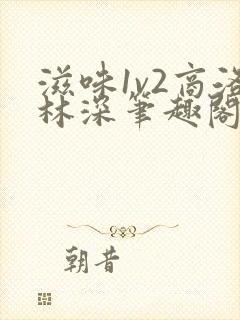 滋味1v2高洛
林深笔趣阁
朝昔